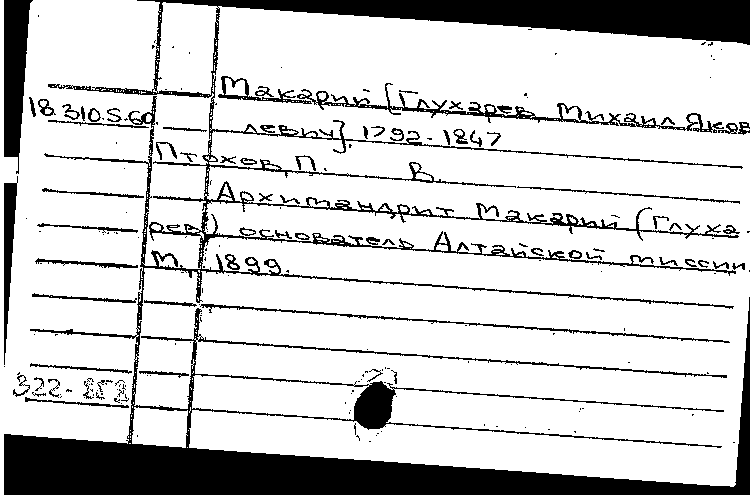 Макарий [Глухарев, Михаил Яков
18.310.5.60 левич]. 1792-1847
Птохов, П. В.
Архимандрит Макарий (Глуха-
рев) основатель Алтайской миссии.
М., 1899.
322-